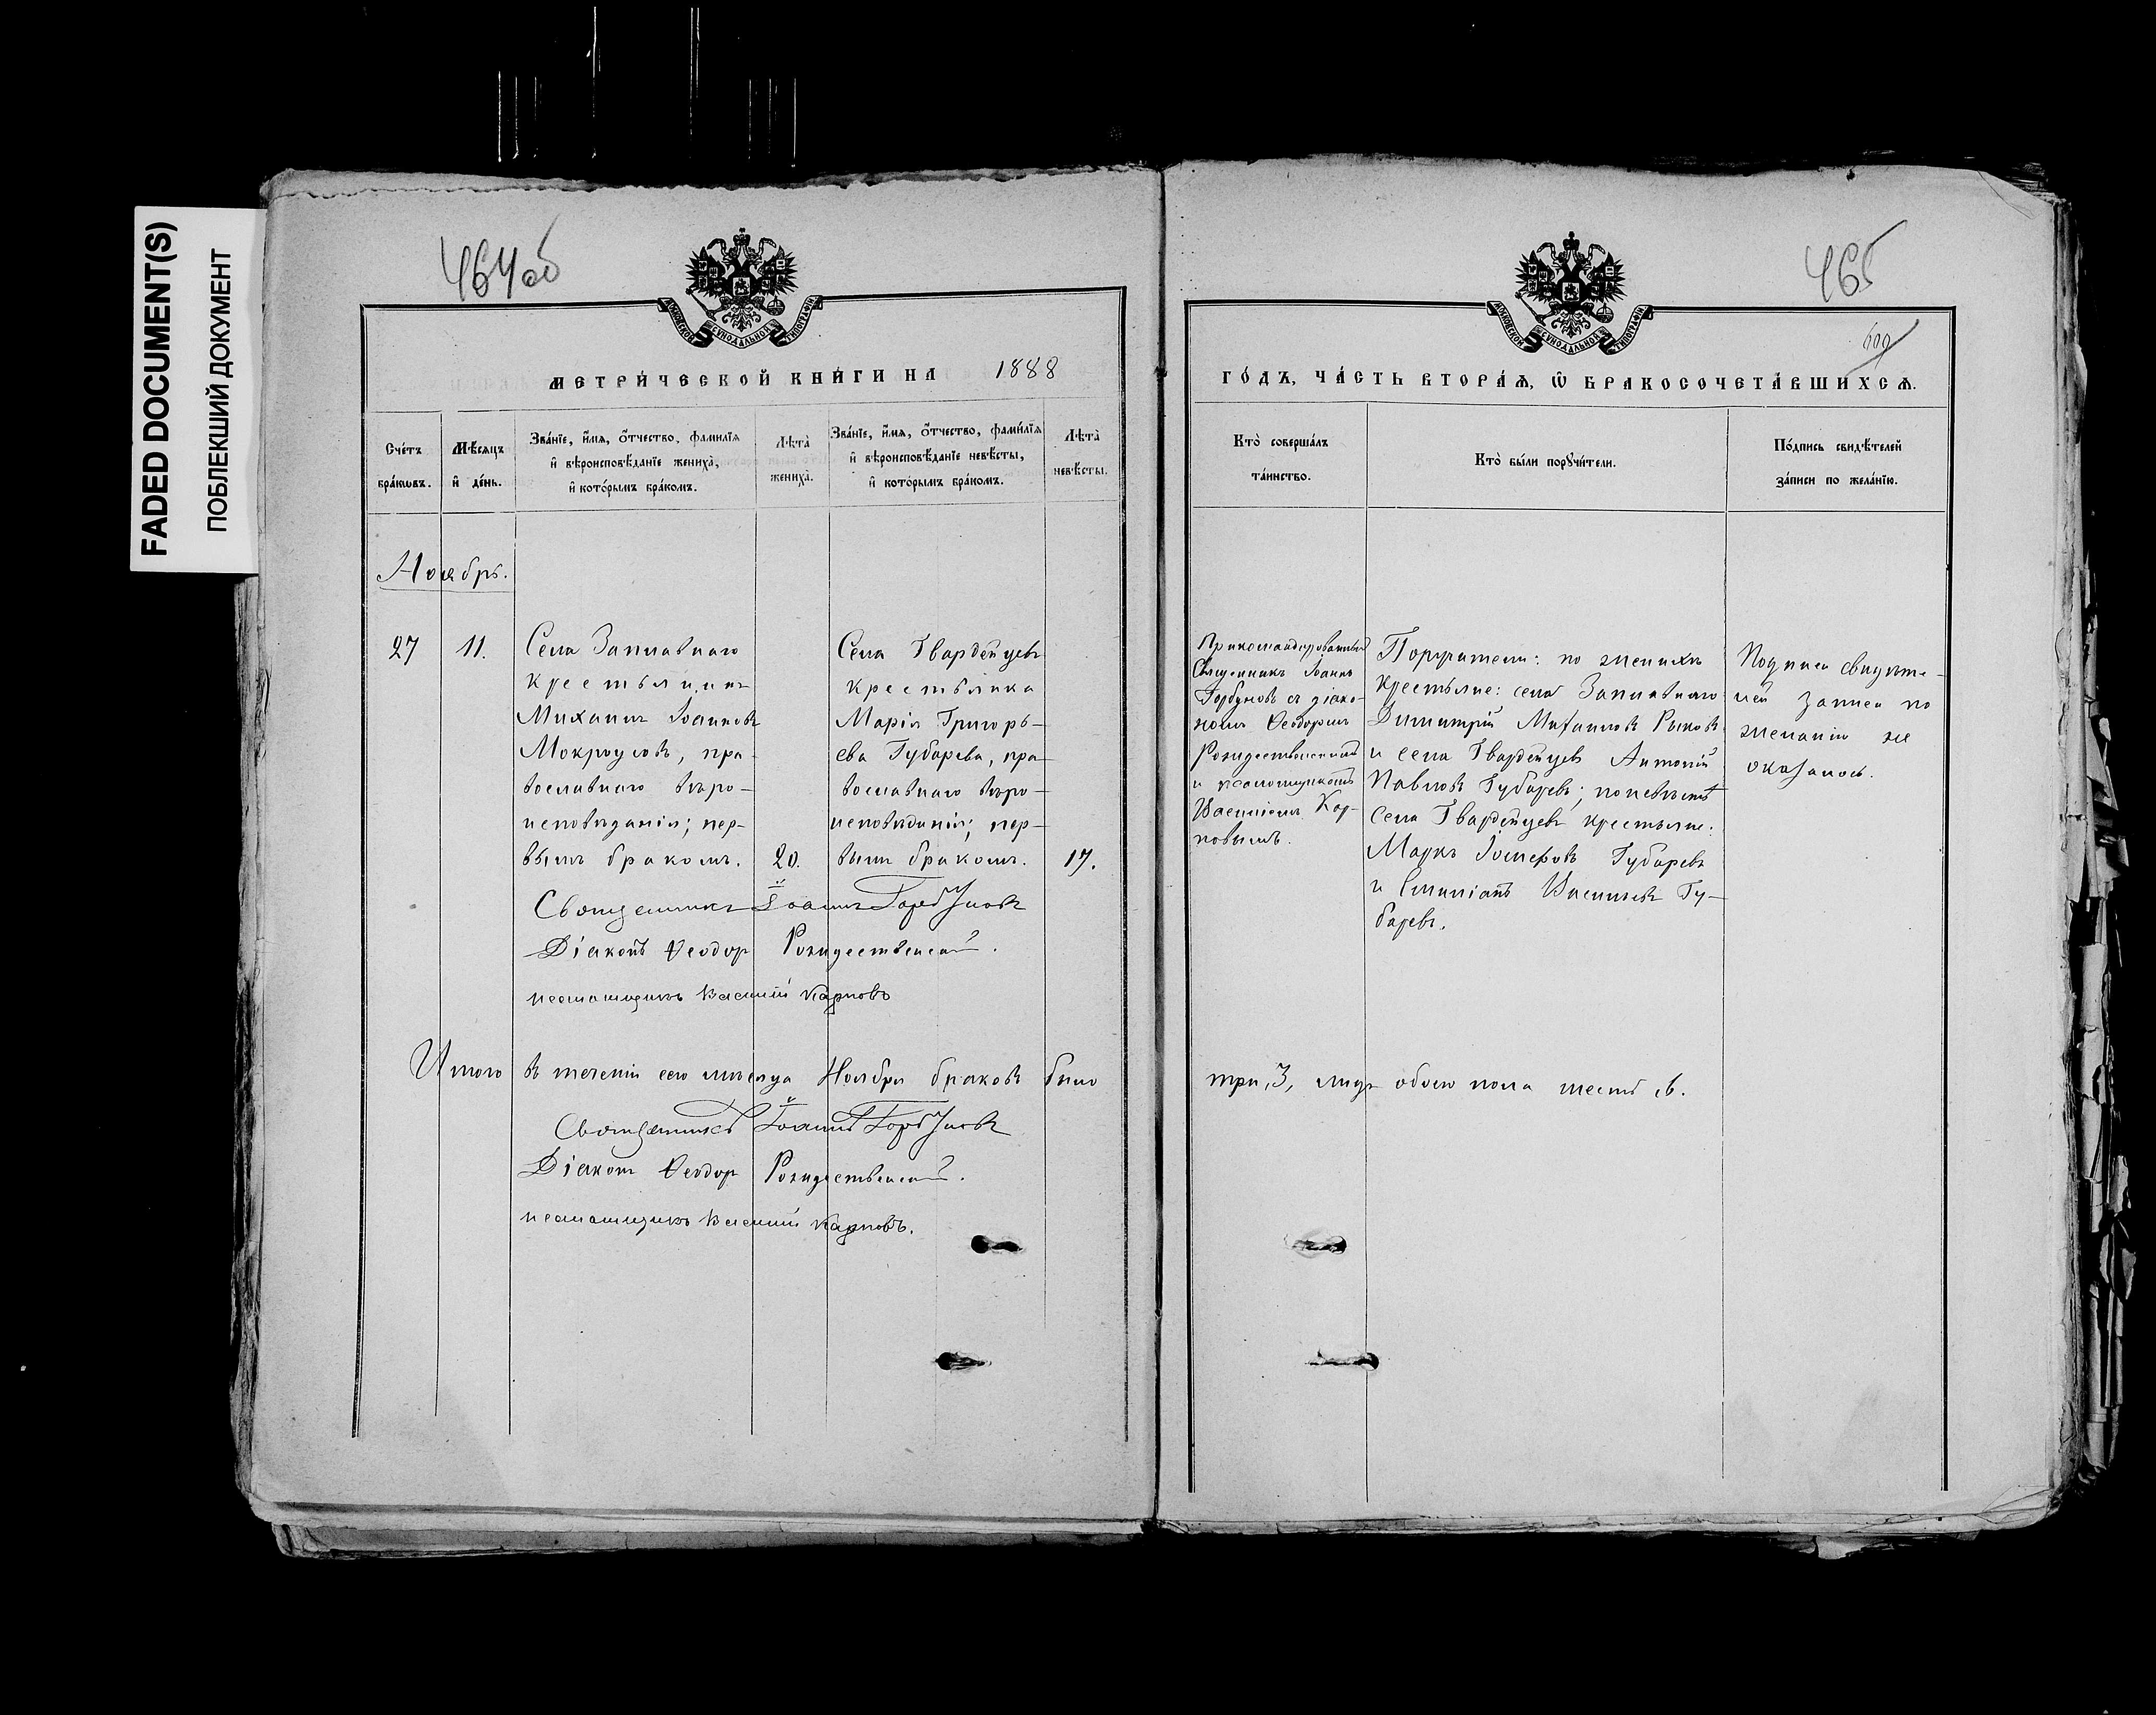 FADED DOCUMENT(S)
ПОБЛЕКШИЙ ДОКУМЕНТ
464об
МОСКОВСКОЙ СѴНОДАЛЬНОЙ ТИПОГРАФІИ
МЕТРИ́ЧЕСКОЙ КНИ́ГИ НА 1888
Сче́тъ
бра́кωвъ.
Мѣ́сяцъ
и҆ де́нь.
Зва́нїе, и҆́мѧ, ѻ҆́тчество, фами́лїѧ
и҆ вѣроисповѣ́данїе жениха̀,
и҆ кото́рымъ бра́комъ.
Лѣта̀
жениха̀.
Зва́нїе, и҆́мѧ, ѻ҆́тчество, фами́лїѧ
и҆ вѣроисповѣ́данїе невѣ́сты,
и҆ кото́рымъ бра́комъ.
Лѣта̀
невѣ́сты.
Ноябрь.
27
11.
Села Заплавнаго
крестьянинъ
Михаилъ Іоанновъ
Мокроусовъ, пра-
вославнаго вѣро-
исповѣданія; пер-
вымъ бракомъ.
20.
Села Гвардейцевъ
крестьянка
Марія Григорь-
ева Губарева, пра-
вославнаго вѣро-
исповѣданія; пер-
вымъ бракомъ.
17.
Священникъ Іоаннъ Горбуновъ
Діаконъ Ѳеодоръ Рождественскій.
псаломщикъ Василій Карповъ
Итого въ теченіи сего мѣсяца Ноября браковъ было
Священникъ Іоаннъ Горбуновъ
Діаконъ Ѳеодоръ Рождественскій.
псаломщикъ Василій Карповъ.
465
600
МОСКОВСКОЙ СѴНОДАЛЬНОЙ ТИПОГРАФІИ
ГО́ДЪ, ЧА́СТЬ ВТОРА́Ѧ, Ѽ БРАКОСОЧЕТА́ВШИХСѦ.
Кто̀ соверша́лъ
та́инство.
Кто̀ бы́ли порꙋчи́тели.
По́дпись свидѣ́телей
за́писи по жела́нїю.
Прикомандированный
Священникъ Іоаннъ
Горбуновъ съ діако-
номъ Ѳеодоромъ
Рождественскимъ
и псаломщикомъ
Василіемъ Кар-
повымъ.
Поручители: по женихѣ
крестьяне: села Заплавнаго
Димитрій Михаиловъ Рыковъ
и села Гвардейцевъ Антоній
Павловъ Губаревъ; по невѣстѣ
села Гвардейцевъ крестьяне:
Маркъ Іосифовъ Губаревъ
и Емиліанъ Васильевъ Гу-
баревъ.
Подписи свидѣте-
лей записи по
желанію не
оказалось.
три, 3, лицъ обоего пола шесть 6.